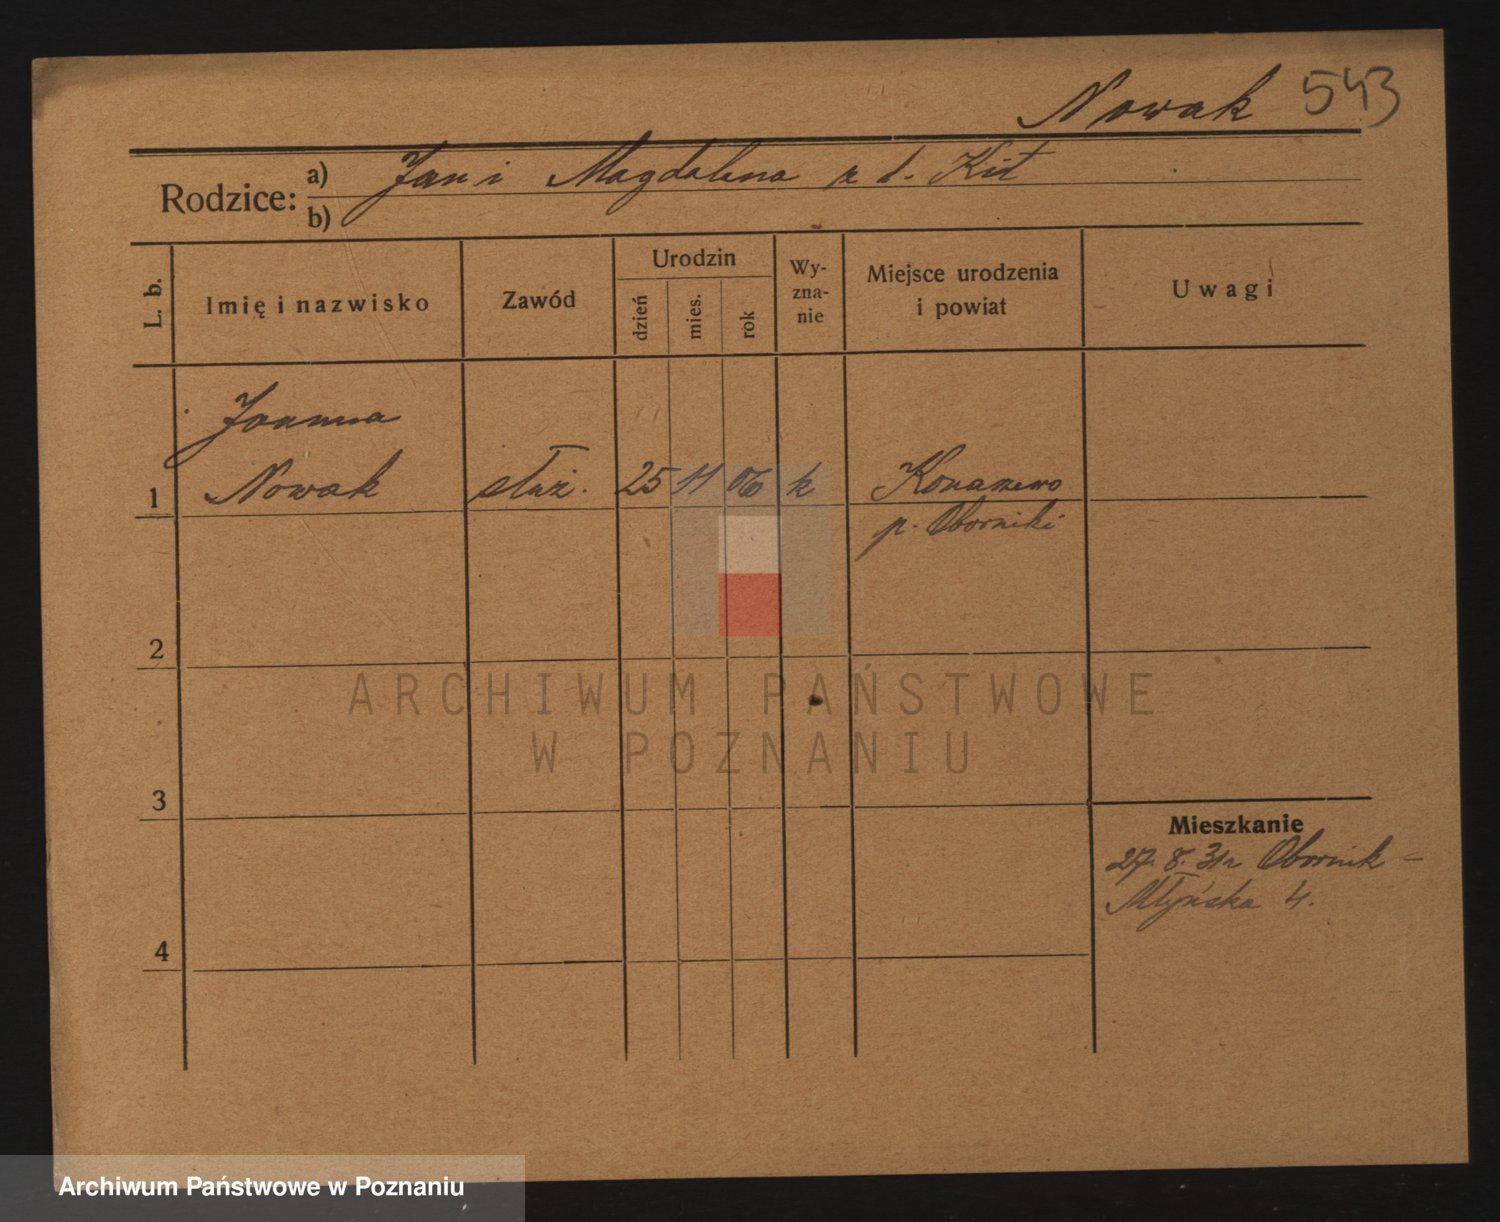 Nowak 543
Rodzice: a) Jan i Magdalena z d. Kit
b)
L. b. Imię i nazwisko Zawód Urodzin dzień mies. rok Wy-zna-nie Miejsce urodzenia i powiat Uwagi
Joanna
1 Nowak służ. 25 11 06 k Konarzewo
p. Oborniki
2
ARCHIWUM PAŃSTWOWE
W POZNANIU
3
Mieszkanie
27. 8. 31 r Obornik -
Młyńska 4.
4
Archiwum Państwowe w Poznaniu